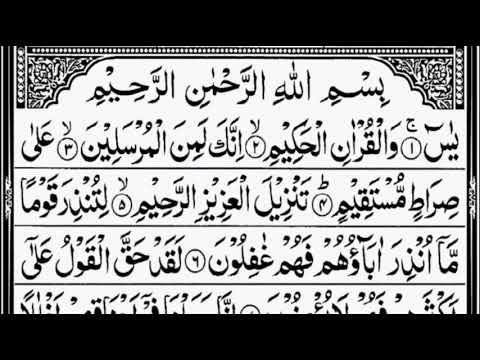 بِسْمِ اللهِ الرَّحْمٰنِ الرَّحِيْمِ
يٰسٓ ۚ﴿۱﴾ وَالْقُرْاٰنِ الْحَكِيْمِ ۙ﴿۲﴾ اِنَّكَ لَمِنَ الْمُرْسَلِيْنَ ۙ﴿۳﴾ عَلٰى
صِرَاطٍ مُّسْتَقِيْمٍ ؕ﴿۴﴾ تَنْزِيْلَ الْعَزِيْزِ الرَّحِيْمِ ۙ﴿۵﴾ لِتُنْذِرَ قَوْمًا
مَّاۤ اُنْذِرَ اٰبَآؤُهُمْ فَهُمْ غٰفِلُوْنَ ﴿۶﴾ لَقَدْ حَقَّ الْقَوْلُ عَلٰۤى